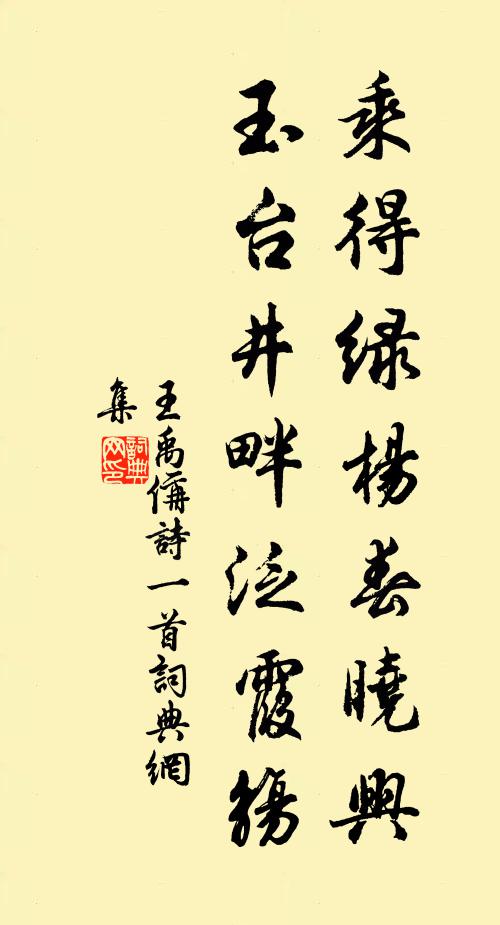 乘得緑楊春曉興
玉台井畔泛霞觴
王禹偁詩一首詞典網
集
詞典
网印